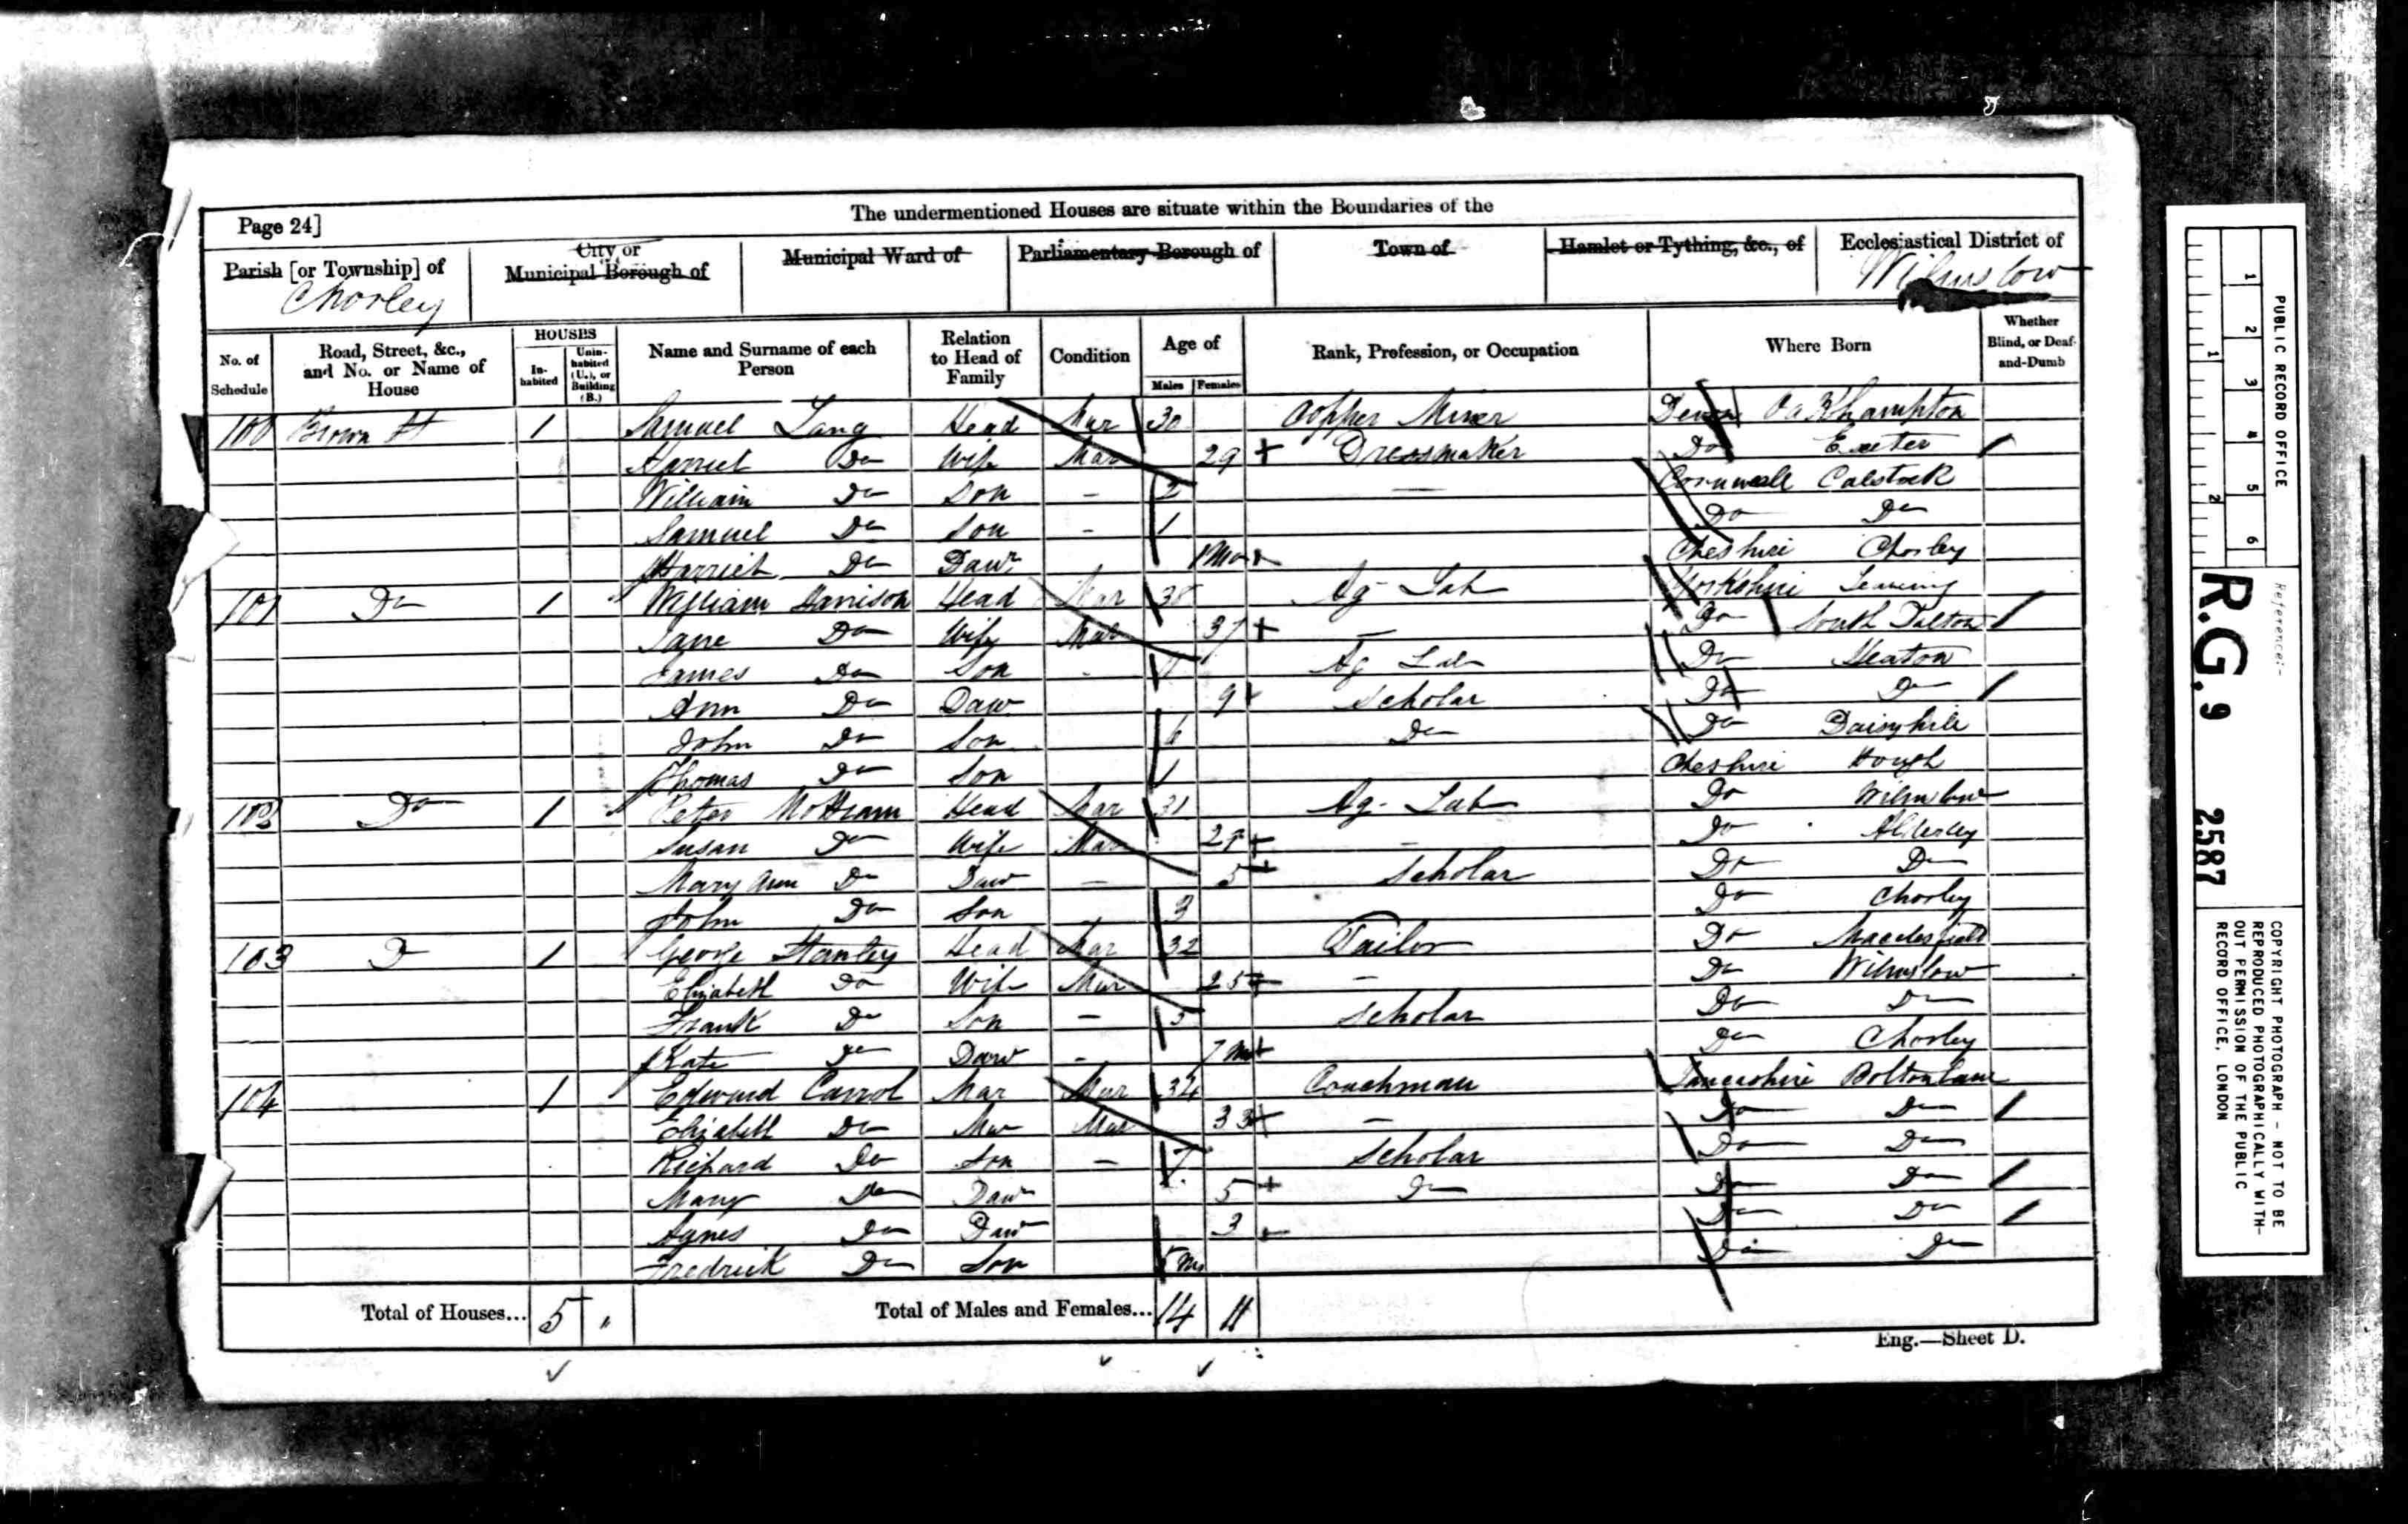 Page 24]
The undermentioned Houses are situate within the Boundaries of the
Parish [or Township] of
Chorley
City or
Municipal Borough of
Municipal Ward of
Parliamentary Borough of
Town of
Hamlet or Tything, &c., of
Ecclesiastical District of
Wilmslow
No. of Schedule
Road, Street, &c., and No. or Name of House
HOUSES
In-habited
Unin-habited (U.), or Building (B.)
Name and Surname of each Person
Relation to Head of Family
Condition
Age of
Males
Females
Rank, Profession, or Occupation
Where Born
Whether Blind, or Deaf-and-Dumb
100 Brown St 1 Samuel Lang Head Mar 30 Copper Miner Devon Oakhampton
Harriet Do Wife Mar 29 Dressmaker Do Exeter
William Do Son - 2 — Cornwall Calstock
Samuel Do Son - 1 Do Do
Harriet Do Dawr 1 Mo Cheshire Chorley
101 Do 1 William Harrison Head Mar 38 Ag Lab Yorkshire
Jane Do Wife Mar 37 — Do South Dalton
James Do Son Ag Lab Do Heaton
Ann Do Daw 9 Scholar Do Do
John Do Son 6 Do Do Daisyhill
Thomas Do Son 1 Cheshire Hough
102 Do 1 Peter Mottram Head Mar 31 Ag- Lab Do Wilmslow
Susan Do Wife Mar 29 — Do Alderley
Mary Ann Do Daw — 5 Scholar Do Do
John Do Son 3 Do Chorley
103 Do 1 George Stanley Head Mar 32 Tailor Do Macclesfield
Elizabeth Do Wife Mar 25 — Do Wilmslow
Frank Do Son — 5 Scholar Do Do
Kate Do Daw - 7 Mo Do Chorley
104 1 Edward Carrol Mar Mar 34 Coachman Lancashire Boltonlane
Elizabeth Do Mar Mar 33 — Do Do
Richard Do Son — 7 Scholar Do Do
Mary Do Dawr 5 Do Do Do
Agnes Do Daw 3 Do Do
Fredrick Do Son 5 Mo Do Do
Total of Houses... 5 "
Total of Males and Females... 14 11
Eng.—Sheet D.
PUBLIC RECORD OFFICE
1 2 3 4 5 6
1 2
Reference:-
R.G. 9 2587
COPYRIGHT PHOTOGRAPH - NOT TO BE
REPRODUCED PHOTOGRAPHICALLY WITH-
OUT PERMISSION OF THE PUBLIC
RECORD OFFICE, LONDON